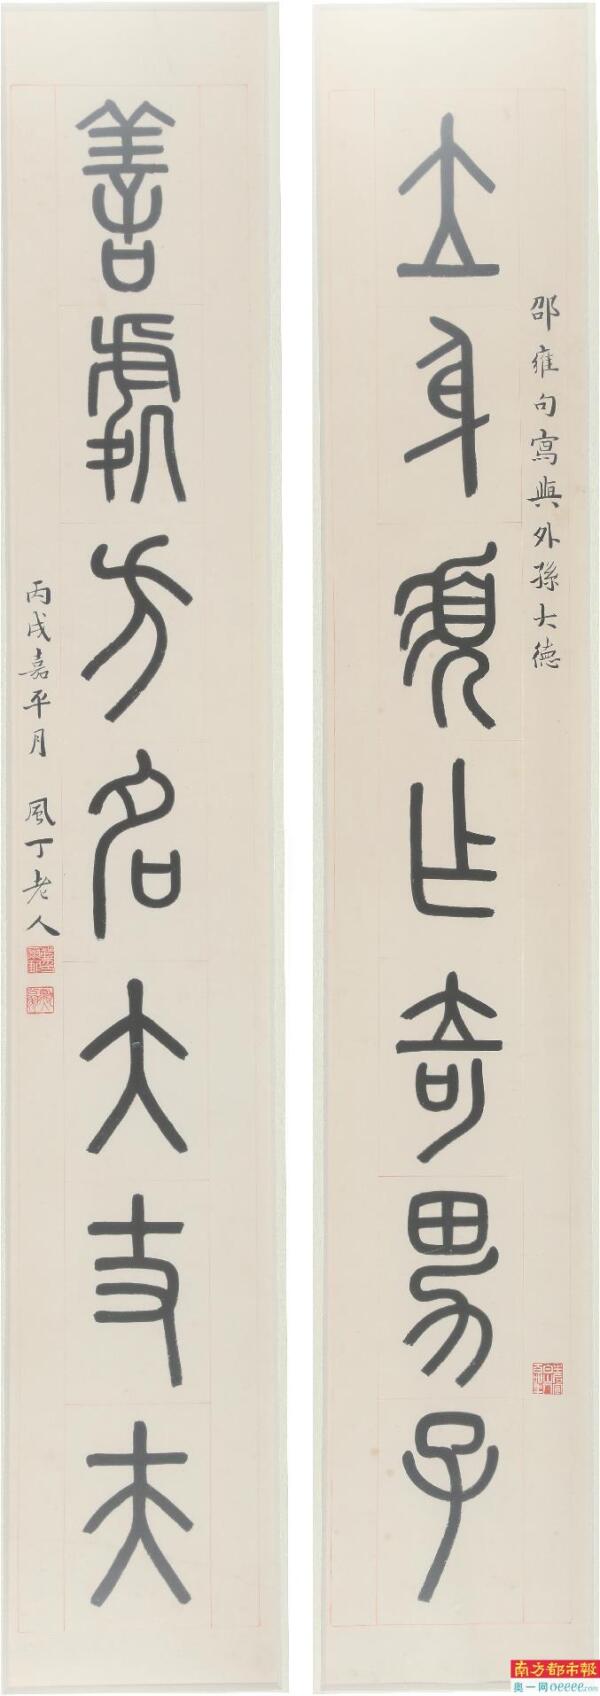 邵雍句寫與外孫大德
立身須乍奇男子
善處方名大丈夫
丙戌嘉平月 風丁老人
南方都市報
奥一网oeeee.com